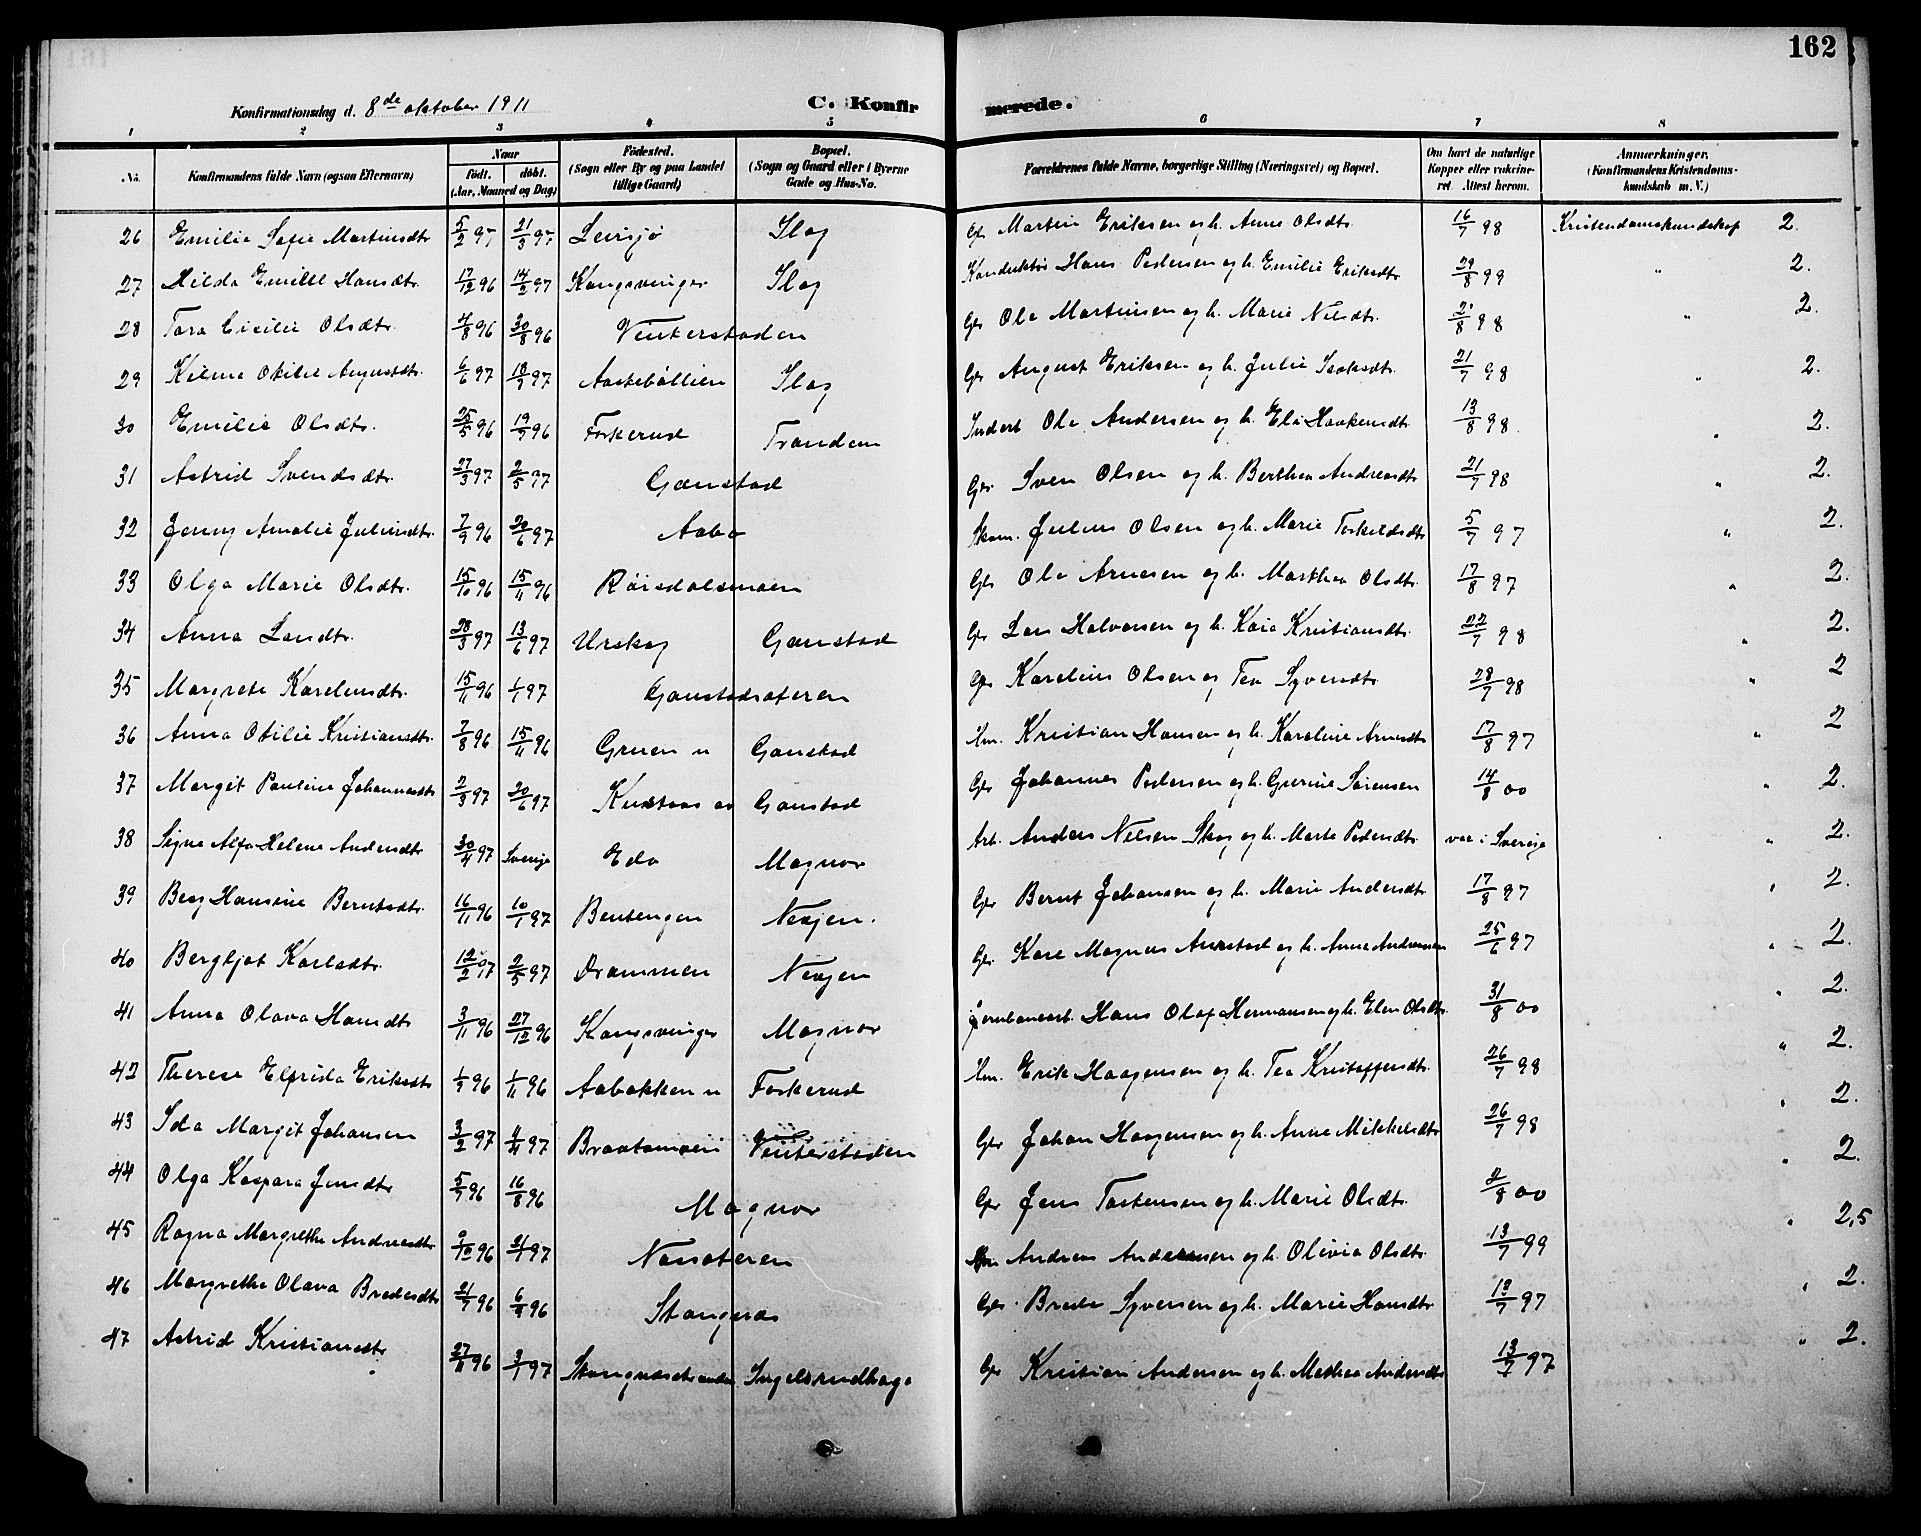 162
Konfirmationsdag d. 8de oktober 1911 C. Konfirmerede.
1 2 3 4 5 6 7 8
No. Konfirmandens fulde Navn (ogsaa Efternavn) Naar født. døbt. (Aar, Maaned og Dag) Fødested. (Sogn eller By og paa Landet tillige Gaard) Bopæl. (Sogn og Gaard eller i Byerne Gade og Hus-No. Forældrenes fulde Navne, borgerlige Stilling (Næringsvei) og Bopæl. Om havt de naturlige Kopper eller vakcineret. Attest herom. Anmærkninger. (Konfirmandens Kristendomskundskab m. V.)
26 Emilie Sofie Martinsdtr 5/2 97 21/3 97 Leirsjø Skog Gbr Martin Eriksen og h. Anne Olsdtr. 16/7 98 Kristendomskundskap 2.
27 Hilda Emilie Hansdtr. 17/12 96 14/2 97 Kongsvinger Skog Konduktør Hans Pedersen og h. Emilie Eriksdtr 29/8 99 " 2.
28 Tora Cicilie Olsdtr. 4/8 96 30/8 96 Vinterstaden Gbr Ole Martinsen og h. Marie Nilsdtr. 2/8 98 " 2.
29 Otilie Augustsdtr. 6/6 97 18/7 97 Skog Gbr August Eriksen og h. Julie Isaksdtr. 21/7 98 " 2.
30 Emilie Olsdtr. 25/5 96 19/7 96 Foskerud Trandem Inderst Ole Andersen og h. Eli Haakensdtr 13/8 98. " 2.
31 Astrid Svendsdtr. 27/3 97 2/5 97 Gaustad Gbr. Sven Olsen og h. Berthea Andreasdtr 21/7 98 " 2.
32 Jenny Amalie Juliusdtr. 7/9 96 20/6 97 Aabo Skom. Julius Olsen og h. Marie Torkildsdtr 5/7 97 " 2.
33 Olga Marie Olsdtr. 15/10 96 15/11 96 Røisdalsmoen Gbr Ole Arnesen og h. Marthea Olsdtr. 17/8 97 " 2.
34 Anna Larsdtr. 28/3 97 13/6 97 Urskog Gaustad Gbr Lars Halvorsen og h. Kaia Kristiansdtr. 22/7 98 " 2.
35 Margrete Karelinsdtr. 15/11 96 1/1 97 Gaustadsæteren Gbr Karelius Olsen og Tea Syversdtr 28/7 98 " 2
36 Anna Otilie Kristiansdtr. 7/8 96 15/11 96 Gruen u Gaustad Hm. Kristian Hansen og h. Karoline Arnesdtr 17/8 97 " 2
37 Margit Pauline Johannesdtr 2/3 97 20/6 97 Gaustad Gbr Johannes Pedersen og h. Gurine Sørensen 14/8 00 " 2.
38 Signe Alfa Helene Andersdtr 30/4 97 Sverige Eda Magnor Arb. Anders Nilsen Skog og h. Marte Pedersdtr. vac i Sverige " 2.
39 Hansine Berntsdtr. 16/11 96 10/1 97 Bentengen Nesjen. Gbr Bernt Johansen og h. Marie Andersdtr 17/8 97 " 2.
40 Bergljot Karlsdtr. 12/2 97 2/5 97 Drammen Nesjen Gbr. Kare Magnus Aurstad og h. Anne Andersen 25/6 97 " 2.
41 Anna Olava Hansdtr 3/11 96 27/12 96 Kongsvinger Magnor Jernbanearb. Hans Olaf Hermansen og h. Elen Olsdtr. 31/8 00 " 2.
42 Therese Elfrida Eriksdtr 1/9 96 1/11 96 Aabakken u Foskerud Hm. Erik Haagensen og h. Tea Kristoffersdtr. 26/7 98 " 2.
43 Ida Margit Johansen 3/2 97 4/4 97 Braatamoen Vinterstaden Gbr Johan Haagensen og h. Anne Mikkelsdtr 26/7 98 " 2.
44 Olga Kaspara Jensdtr 5/7 96 16/8 96 Magnor Gbr Jens Torstensen og h. Marie Olsdtr. 2/8 00 " 2.
45 Ragna Margrethe Andreasdtr 9/12 96 21/1 97 Nansæteren Andreas Andersen og h. Olivia Olsdtr. 13/7 99 " 2,5
46 Margrethe Olava Bredesdtr 21/7 96 6/9 96 Stangnæs Gbr. Brede Syversen og h. Marie Hansdtr 12/7 97 " 2.
47 Astrid Kristiansdtr 27/11 96 3/1 97 Stangnæsstranden Ingelsrudhage Gbr Kristian Andersen og h. Mathea Andersdtr 13/7 97 " 2.